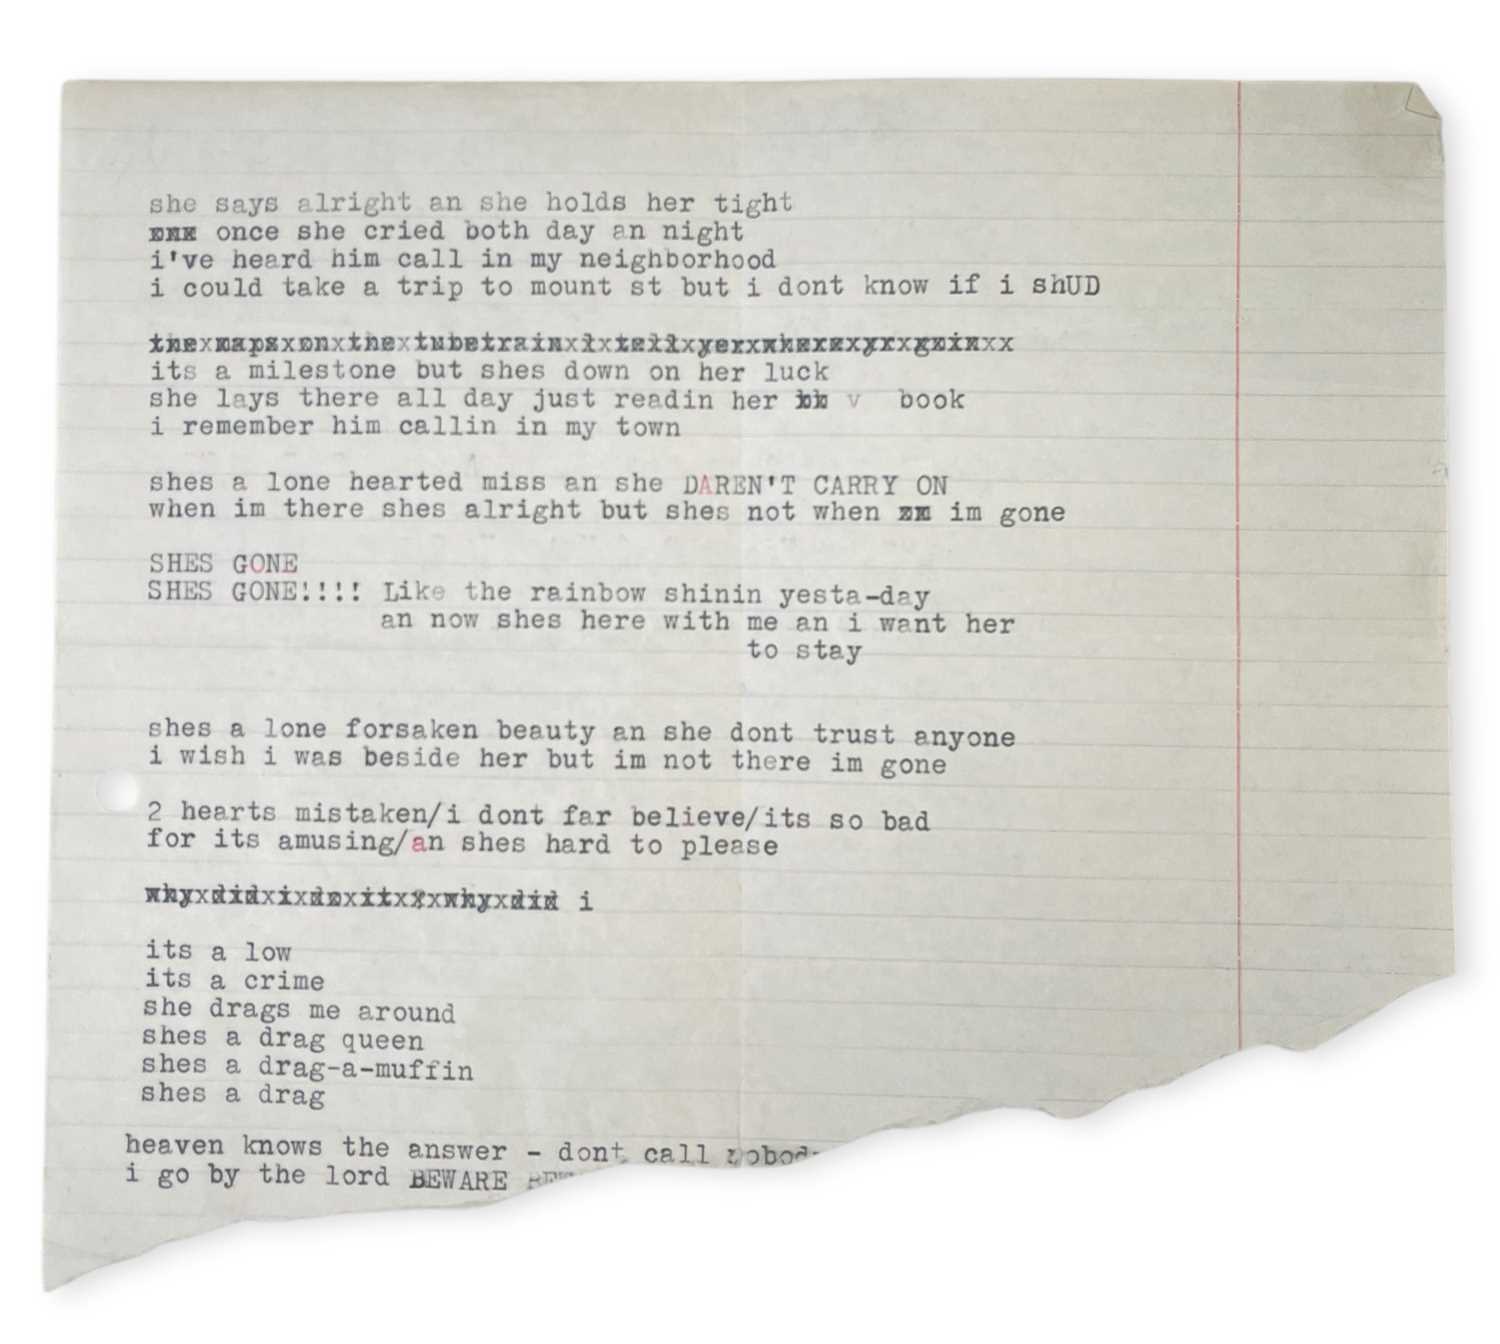 she says alright an she holds her tight
once she cried both day an night
i've heard him call in my neighborhood
i could take a trip to mount st but i dont know if i shUD
the maps on the tubetrain i tell yer where yr goin
its a milestone but shes down on her luck
she lays there all day just readin her v book
i remember him callin in my town
shes a lone hearted miss an she DAREN'T CARRY ON
when im there shes alright but shes not when im gone
SHES GONE
SHES GONE!!!! Like the rainbow shinin yesta-day
an now shes here with me an i want her
to stay
shes a lone forsaken beauty an she dont trust anyone
i wish i was beside her but im not there im gone
2 hearts mistaken/i dont far believe/its so bad
for its amusing/an shes hard to please
why did i do it why did i
its a low
its a crime
she drags me around
shes a drag queen
shes a drag-a-muffin
shes a drag
heaven knows the answer - dont call
i go by the lord BEWARE